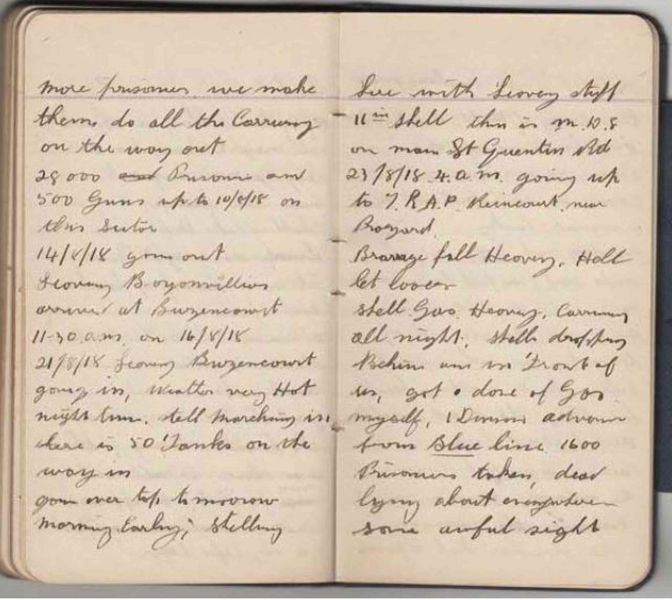 more prisoners, we make
them do all the Carrying
on the way out
28 000 and Prisoners and
500 Guns up to 10/8/18 on
this Sector
14/8/18 gone out
leaving
arrived at Buzencourt
11-30 a.m. on 16/8/18
21/8/18 leaving Buzencourt
going in, Weather very Hot
night time, still marching in
there is 50 Tanks on the
way in
gon over top tomorrow
Morning Early, Shelling
with Heavey stuff
11 in shell this is M.D.S
on main St Quentin Rd
23/8/18 4.a.m. going up
to R.A.P. near
Barrage fell Heavey, Hell
let loose
shell Gas Heavey, Carrying
all night, shells dropping
Behind and in Front of
us, got a dose of Gas
myself, 1 Division advance
from Blue line 1600
Prisoners taken, dead
lying about everywhere
some awful sight